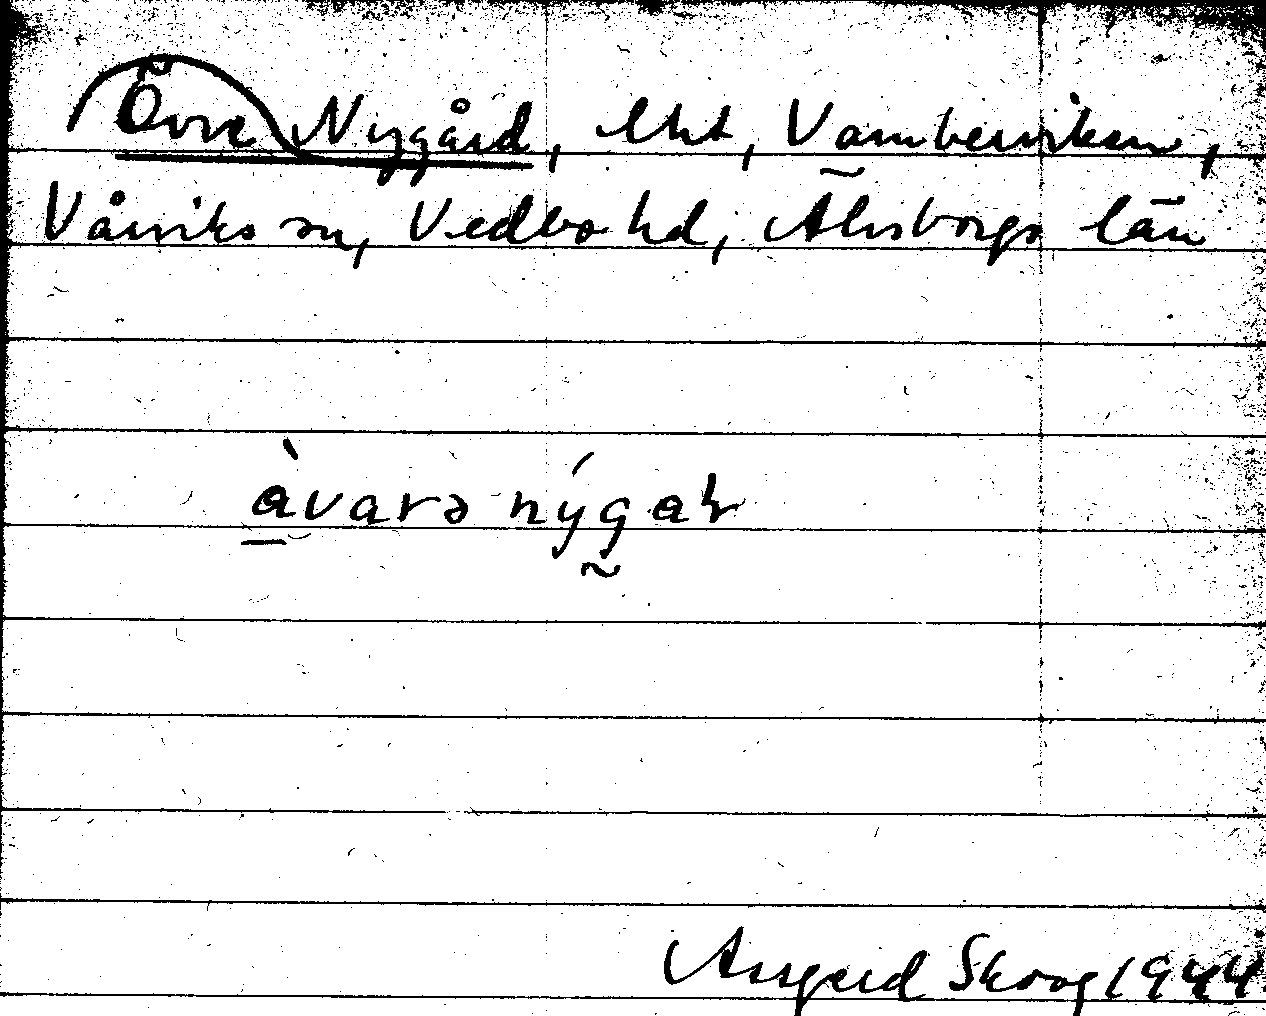 Övre Nygård, lht, Vambersviken,
Vårviks sn, Vedbo hd, Älvsborgs län
àvarə nýgaƫ
Assgerd Skoog 1944